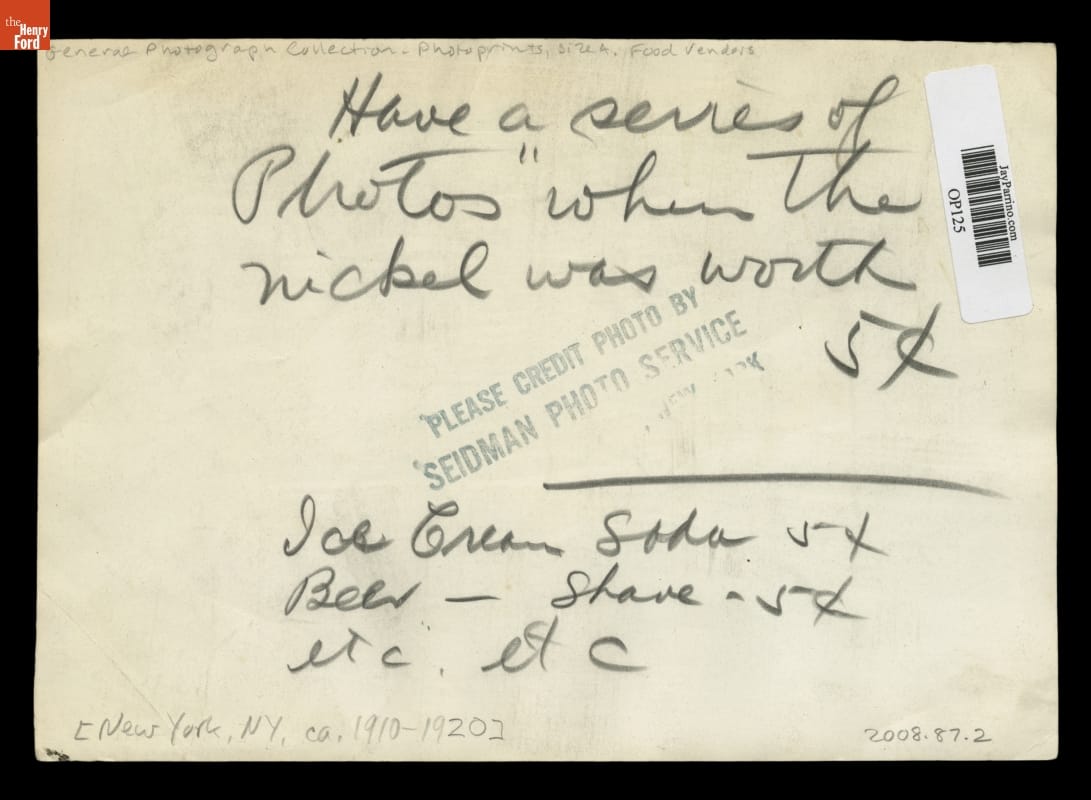 the
Henry
Ford
General Photograph Collection - Photoprints, Size A. Food Vendors
Have a series of
Photos "when the
nickel was worth
5¢
JayParrino.com
OP125
PLEASE CREDIT PHOTO BY
SEIDMAN PHOTO SERVICE
NEW
Ice Cream Soda 5¢
Beer — Shave - 5¢
etc. etc
[New York, NY, ca. 1910-1920]
2008.87.2